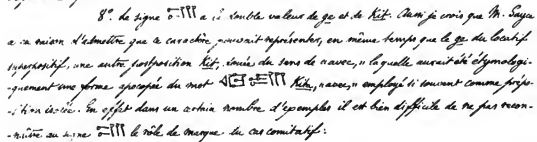 8°. Le signe 𒆤 a la double valeur de ge et de Kit. Aussi je crois que M. Sayce
a eu raison d'admettre que ce caractère pouvait représenter, en même temps que le ge du locatif
superpositif, une autre postposition Kit, douée du sens de « avec, » laquelle aurait été étymologi-
-quement une forme apocopée du mot Kita, « avec, » employé si souvent comme prépo-
sition isolée. En effet dans un certain nombre d'exemples il est bien difficile de ne pas recon-
-naître au signe le rôle de marque du cas comitatif: